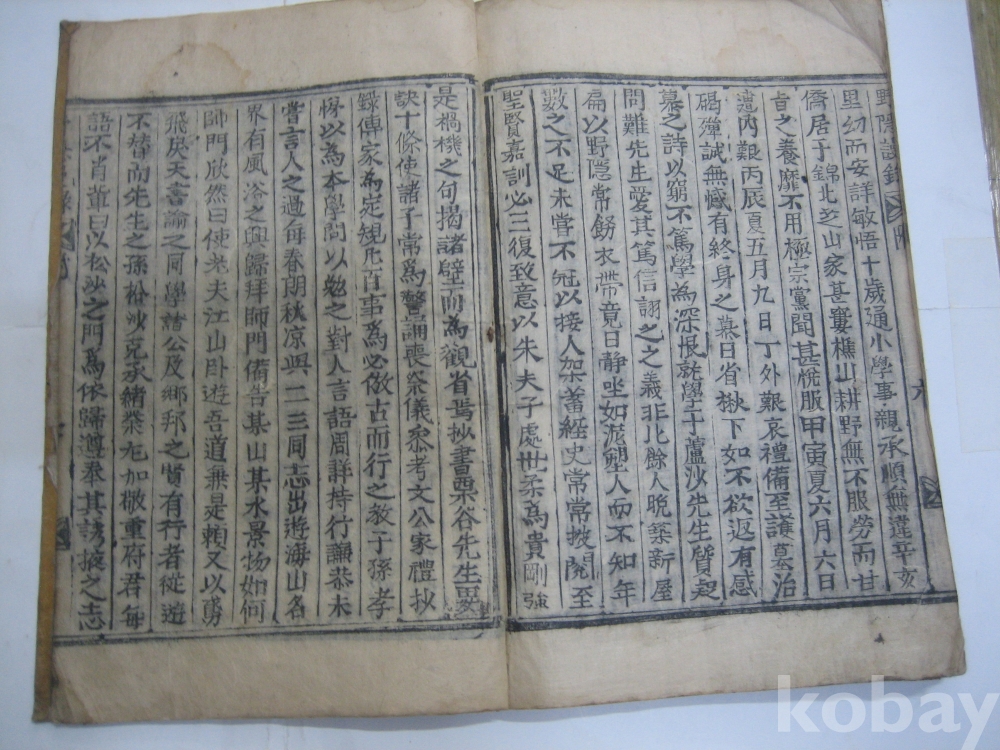 里幼而安詳敏悟十歲通小學事親承順無違辛亥
僑居于錦北芝山家甚窶樵山耕野無不服勞而甘
旨之養靡不用極宗黨聞甚悅服甲寅夏六月六日
遭內艱丙辰夏五月九日丁外艱哀禮備至護墓治
碣殫誠無憾有終身之慕日省楸下如不欲返有感
慕之詩以窮不篤學為深恨就學于蘆沙先生質疑
問難先生愛其篤信詡之之義非比餘人晩築新屋
扁以野隱常飭衣帶竟日静坐如泥塑人而不知年
數之不足未嘗不冠以接人架蓄経史常常披閱至
聖賢嘉訓必三復致意以朱夫子處世柔為貴剛強
是禍機之句揭諸壁而為觀省焉抄書栗谷先生要
訣十條使諸子常為警誦喪祭儀叅考文公家禮抄
錄傳家為定規凡百事為必倣古而行之敎子孫孝
悌以為本學問以勉之對人言語周詳持行謙恭未
嘗言人之過每春明秋凉與二三同志出遊海山名
界有風浴之興歸拜師門備告某山某水景物如何
師門欣然曰使老夫江山卧遊吾道無是賴又以勇
飛戾天書諭之同學諸公及鄉邦之賢有行者從遊
不替而先生之孫松沙克承緒業尤加敬重府君每
語不肖輩曰以松沙之門為依歸遵奉其誘掖之志
kobay